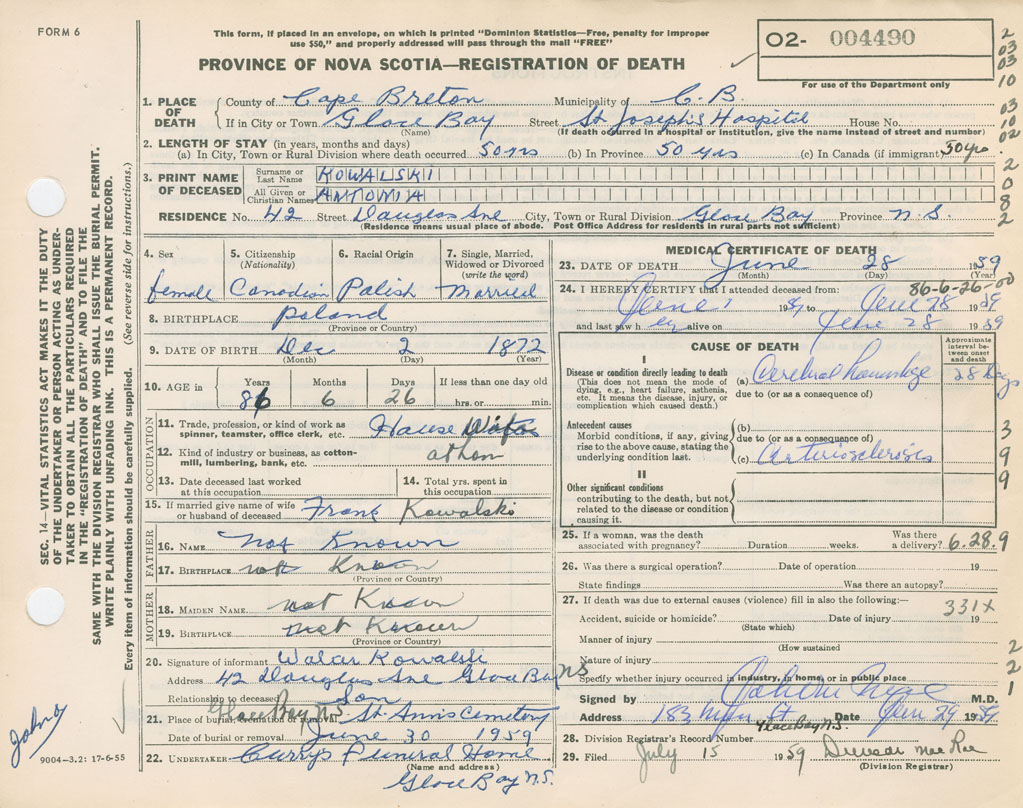 FORM 6
This form, if placed in an envelope, on which is printed "Dominion Statistics—Free, penalty for improper
use $50," and properly addressed will pass through the mail "FREE"
PROVINCE OF NOVA SCOTIA—REGISTRATION OF DEATH
02- 004490
For use of the Department only
2
03
03
10
03
10
02
2
0
8
2
1. PLACE OF DEATH
County of Cape Breton Municipality of C.B.
If in City or Town Glace Bay Street St Joseph's Hospital House No.
(Name) (If death occurred in a hospital or institution, give the name instead of street and number)
2. LENGTH OF STAY (in years, months and days)
(a) In City, Town or Rural Division where death occurred 50 yrs (b) In Province 50 yrs (c) In Canada (if immigrant) 50 yrs.
3. PRINT NAME OF DECEASED
Surname or Last Name KOWALSKI
All Given or Christian Names ANTONIA
RESIDENCE No. 42 Street Douglas Ave City, Town or Rural Division Glace Bay Province N.S.
(Residence means usual place of abode. Post Office Address for residents in rural parts not sufficient)
4. Sex
female
5. Citizenship
(Nationality)
Canadian
6. Racial Origin
Polish
7. Single, Married,
Widowed or Divorced
(write the word)
Married
8. BIRTHPLACE Poland
(Province or Country)
9. DATE OF BIRTH Dec 2 1872
(Month) (Day) (Year)
10. AGE in
Years Months Days If less than one day old
86 6 26 hrs. or min.
OCCUPATION
11. Trade, profession, or kind of work as
spinner, teamster, office clerk, etc. House
12. Kind of industry or business, as cotton-
mill, lumbering, bank, etc.
13. Date deceased last worked
at this occupation
14. Total yrs. spent in
this occupation
15. If married give name of wife
or husband of deceased Frank Kowalski
FATHER
16. NAME not Known
17. BIRTHPLACE not Known
(Province or Country)
MOTHER
18. MAIDEN NAME not Known
19. BIRTHPLACE not Known
(Province or Country)
20. Signature of informant Walter Kowalski
Address 42 Douglas Ave Glace Bay NS
Relationship to deceased Son
21. Place of burial, cremation or removal Glace Bay N.S. St. Anns Cemetery
Date of burial or removal June 30 1959
22. UNDERTAKER Currys Funeral Home
(Name and address)
Glace Bay N.S.
MEDICAL CERTIFICATE OF DEATH
23. DATE OF DEATH June 28 1959
(Month) (Day) (Year)
24. I HEREBY CERTIFY that I attended deceased from: 86-6-26-00
June 1 1959 to June 28 1959
and last saw h er alive on June 28 1959
CAUSE OF DEATH
Approximate
interval be-
tween onset
and death
I
Disease or condition directly leading to death
(This does not mean the mode of
dying, e.g., heart failure, asthenia,
etc. It means the disease, injury, or
complication which caused death.)
(a) Cerebral hemorrhage 28 days
due to (or as a consequence of)
Antecedent causes
Morbid conditions, if any, giving
rise to the above cause, stating the
underlying condition last.
(b)
due to (or as a consequence of)
(c) Arteriosclerosis
II
Other significant conditions
contributing to the death, but not
related to the disease or condition
causing it.
3
9
9
25. If a woman, was the death
associated with pregnancy? Duration weeks. Was there
a delivery? 6.28.9
26. Was there a surgical operation? Date of operation 19
State findings Was there an autopsy?
27. If death was due to external causes (violence) fill in also the following:—
331X
Accident, suicide or homicide? Date of injury 19
(State which)
Manner of injury
(How sustained
Nature of injury
Specify whether injury occurred in industry, in home, or in public place
2
2
1
Signed by M.D.
Address 183 Main St Date June 29 1959
Glace Bay N.S.
28. Division Registrar's Record Number
29. Filed July 15 1959 Duncan MacRae
(Division Registrar)
SEC. 14—VITAL STATISTICS ACT MAKES IT THE DUTY
OF THE UNDERTAKER OR PERSON ACTING AS UNDER-
TAKER TO OBTAIN ALL THE PARTICULARS REQUIRED
IN THE "REGISTRATION OF DEATH" AND TO FILE THE
SAME WITH THE DIVISION REGISTRAR WHO SHALL ISSUE THE BURIAL PERMIT.
WRITE PLAINLY WITH UNFADING INK. THIS IS A PERMANENT RECORD.
Every item of information should be carefully supplied. (See reverse side for instructions.)
9004-3.2: 17-6-55